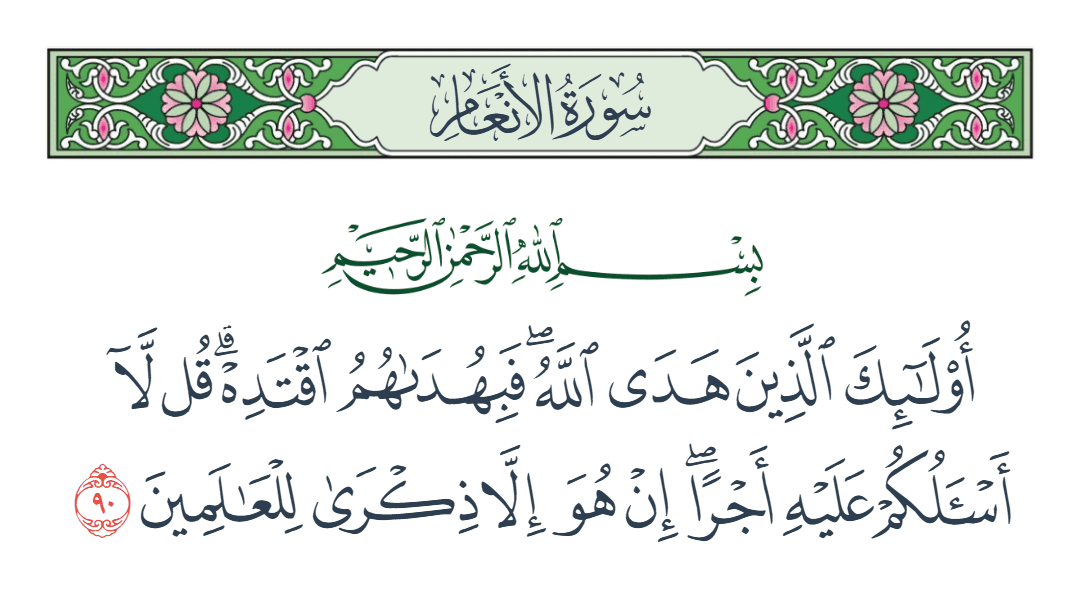 سُورَةُ الأَنْعَامِ
بِسْمِ ٱللَّهِ ٱلرَّحْمَٰنِ ٱلرَّحِيمِ
أُوْلَـٰٓئِكَ ٱلَّذِينَ هَدَى ٱللَّهُۖ فَبِهُدَىٰهُمُ ٱقْتَدِهْۗ قُل لَّآ
أَسْـَٔلُكُمْ عَلَيْهِ أَجْرًاۖ إِنْ هُوَ إِلَّا ذِكْرَىٰ لِلْعَـٰلَمِينَ ٩٠